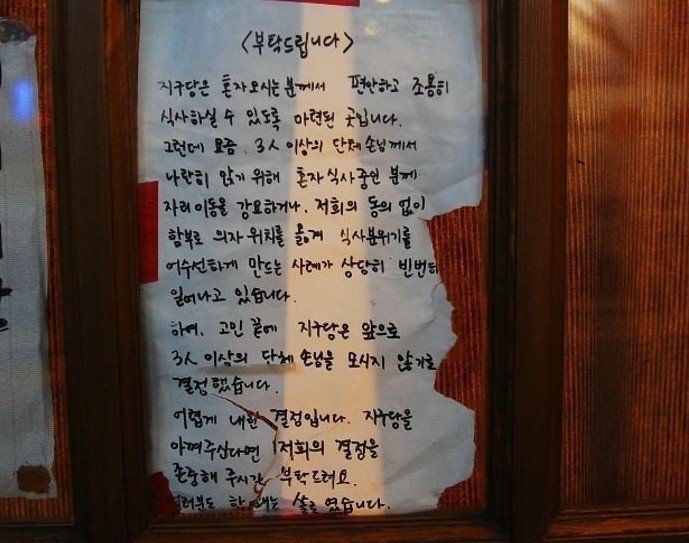 <부탁드립니다>
지구당은 혼자오시는 분께서 편안하고 조용히
식사하실 수 있도록 마련된 곳입니다.
그런데 요즘, 3人 이상의 단체 손님께서
나란히 앉기 위해 혼자 식사중인 분께
자리이동을 강요하거나, 저희의 동의 없이
함부로 의자 위치를 옮겨 식사분위기를
어수선하게 만드는 사례가 상당히 빈번히
일어나고 있습니다.
하여, 고민 끝에 지구당은 앞으로
3人 이상의 단체 손님을 모시지 않기로
결정했습니다.
어렵게 내린 결정입니다. 지구당을
아껴주신다면 저희의 결정을
존중해 주시간 부탁드려요.
여러분도 한때는 솔로였습니다.